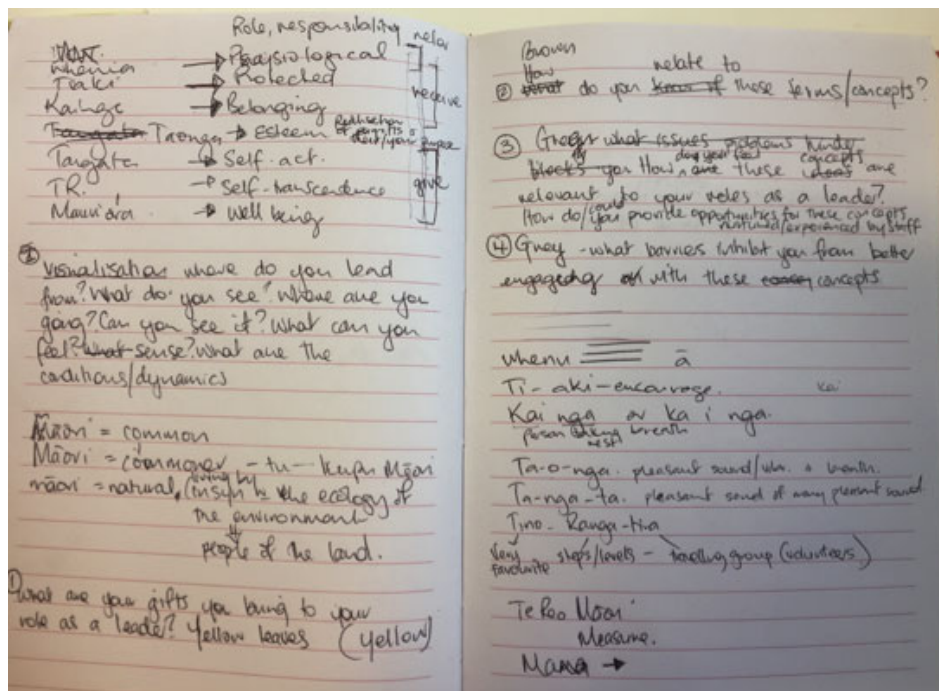 Role, responsibility
whenua → Physiological
Tiaki → Protected
Kainga → Belonging
Tangata Taonga → Esteem
receive
Tangata → Self-act.
give
T.R. → Self-transcendence
Mauri ora → Well being
Visualisation where do you lead
from? What do you see? Where are you
going? Can you see it? What can you
feel? What sense? What are the
conditions/dynamics
Māori = common
Māori = commoner - tu -
māori = natural, living by
the ecology of
the environment
people of the land.
① What are your gifts you bring to your
role as a leader? Yellow leaves (Yellow)
Brown
How relate to
② What do you know of these terms/concepts?
③ Green what issues problems hinder
blocks you How do you feel these ideas concepts are
relevant to your roles as a leader?
How do/could you provide opportunities for these concepts
nurtured/experienced by staff
④ Grey - what barriers inhibit you from better
engaging with these concepts
whenu ā
Ti - aki - encourage. kai
Kai nga or ka i nga.
person taking breath
rest
Ta-o-nga. pleasant sound/ breath.
Ta-nga-ta. pleasant sound of many pleasant sound
Tino - Ranga-tira
Very favourite steps/levels - travelling group (volunteers)
Te Reo Māori
Measure.
Mana →